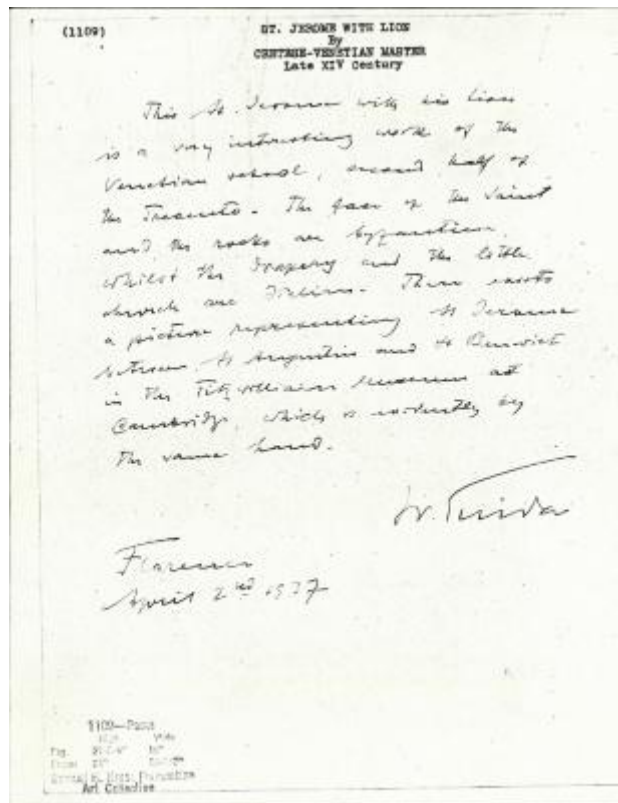 (1109)
ST. JEROME WITH LION
By
CRETESE-VENETIAN MASTER
Late XIV Century
This St. Jerome with his lion
is a very interesting work of the
Venetian school, second half of
the Trecento. The face of the Saint
and the rocks are byzantine,
whilst the drapery and the little
church are Italian. There exists
a picture representing St Jerome
between St Augustin and St Benedict
in the Fitzwilliam Museum at
Cambridge, which is evidently by
the same hand.
W. Suida
Florence
April 2nd 1937
1109—Panel
High Wide
Samuel H. Kress Foundation
Art Collection